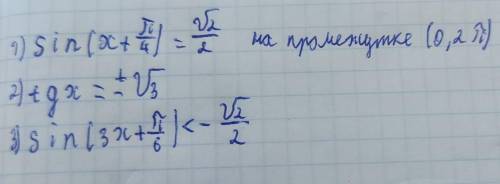 1) sin(x+π/4)=√2/2 на промежутке (0,2π)
2) tgx=±√3
3) sin(3x+π/6)<-√2/2